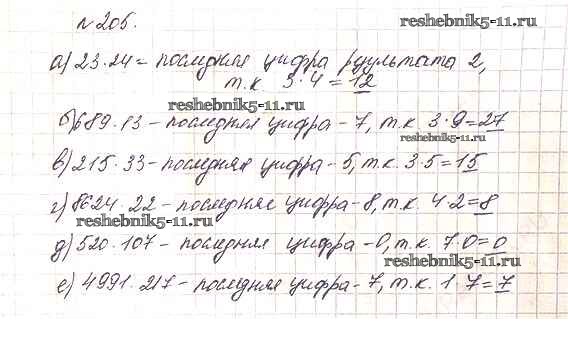 №205.
reshebnik5-11.ru
а) 23·24 = последняя цифра результата 2,
т.к 3·4=12
reshebnik5-11.ru
б) 689·13 - последняя цифра - 7, т.к. 3·9=27
reshebnik5-11.ru
в) 215·33 - последняя цифра - 5, т.к. 3·5=15
г) 8624·22 - последняя цифра - 8, т.к 4·2=8
reshebnik5-11.ru
д) 520·107 - последняя цифра - 0, т.к. 7·0=0
reshebnik5-11.ru
е) 4991·217 - последняя цифра - 7, т.к. 1·7=7
reshebnik5-11.ru